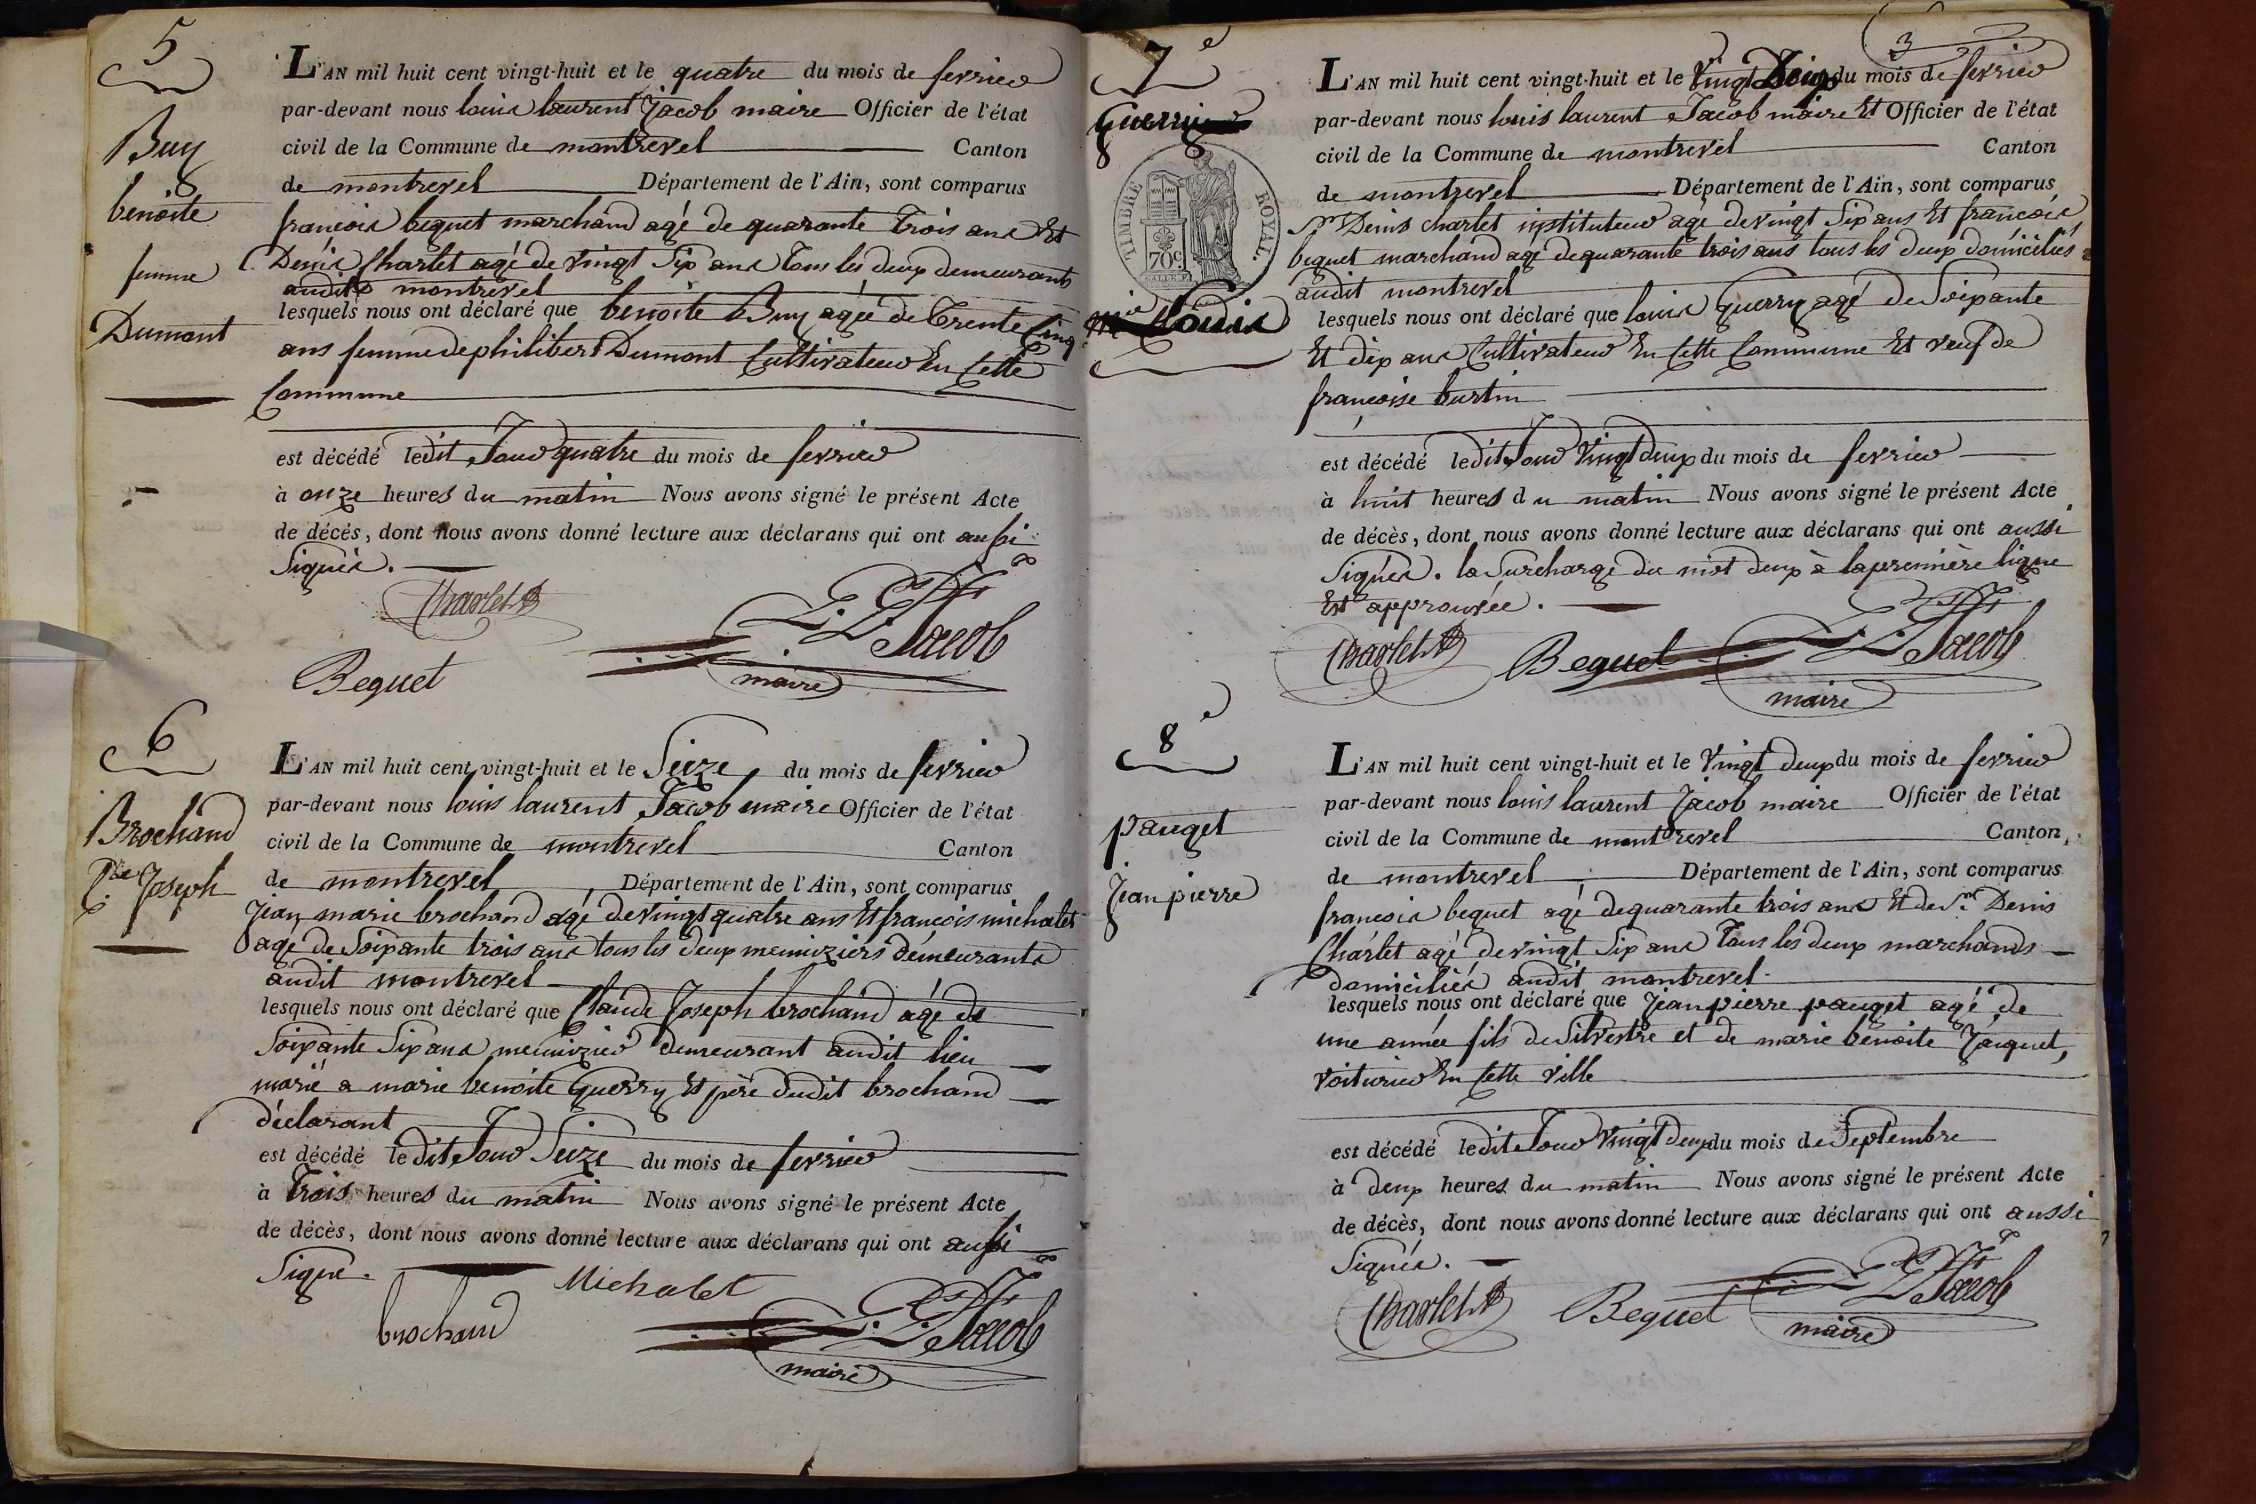 5
Buy
benoite
femme
Dumont
L'AN mil huit cent vingt-huit et le quatre du mois de fevrier
par-devant nous louis laurent Jacob maire Officier de l'état
civil de la Commune de montrevel Canton
de montrevel Département de l'Ain, sont comparus
francois bequet marchand agé de quarante trois ans Et
Denis Charlet agé de vingt Six ans tous les deux demeurants
audit montrevel
lesquels nous ont déclaré que benoite Buy agée de Trente Cinq
ans femme de philibert Dumont Cultivateur En Cette
Commune
est décédé ledit Jour quatre du mois de fevrier
à onze heures du matin Nous avons signé le présent Acte
de décès, dont nous avons donné lecture aux déclarans qui ont aussi
Signés.
Charlet D
L. L. Jacob
Bequet
maire
6
Brochand
Cde Joseph
L'AN mil huit cent vingt-huit et le Seize du mois de fevrier
par-devant nous louis laurent Jacob maire Officier de l'état
civil de la Commune de montrevel Canton
de montrevel Département de l'Ain, sont comparus
Jean marie brochand agé de vingt quatre ans Et francois michalet
agé de Soixante trois ans tous les deux menuziers demeurants
audit montrevel
lesquels nous ont déclaré que Claude Joseph brochand agé de
Soixante Six ans menuizier demeurant audit lieu
marié a marie benoite Guerry Et père dudit brochand
déclarant
est décédé ledit Jour Seize du mois de fevrier
à Trois heures du matin Nous avons signé le présent Acte
de décès, dont nous avons donné lecture aux déclarans qui ont aussi
Signé.
Michalet
brochand
L. L. Jacob
maire
3
7e
Guerry
TIMBRE ROYAL
70c
Louis
L'AN mil huit cent vingt-huit et le Vingt Deux du mois de fevrier
par-devant nous louis laurent Jacob maire Et Officier de l'état
civil de la Commune de montrevel Canton
de montrevel Département de l'Ain, sont comparus
Sr Denis charlet instituteur agé de vingt Six ans Et francois
bequet marchand agé de quarante trois ans tous les deux domiciliés
audit montrevel
lesquels nous ont déclaré que louis Guerry agé de Soixante
Et dix ans Cultivateur En Cette Commune Et veuf de
françoise burtin
est décédé ledit Jour Vingt deux du mois de fevrier
à huit heures du matin Nous avons signé le présent Acte
de décès, dont nous avons donné lecture aux déclarans qui ont aussi
Signés. la Surcharge du mot deux à la première ligne
Est approuvée.
Charlet D
Bequet
L. L. Jacob
maire
8e
pauget
Jean pierre
L'AN mil huit cent vingt-huit et le Vingt deux du mois de fevrier
par-devant nous louis laurent Jacob maire Officier de l'état
civil de la Commune de montrevel Canton
de montrevel Département de l'Ain, sont comparus
francois bequet agé de quarante trois ans Et de Sr Denis
Charlet agé de vingt Six ans Tous les deux marchands
domiciliés audit montrevel
lesquels nous ont déclaré que Jean pierre pauget agé de
une année fils de Silvestre et de marie benoite Jacquet,
voiturier En Cette ville
est décédé ledit Jour Vingt deux du mois de Septembre
à deux heures du matin Nous avons signé le présent Acte
de décès, dont nous avons donné lecture aux déclarans qui ont aussi
Signés.
Charlet D
Bequet
L. L. Jacob
maire